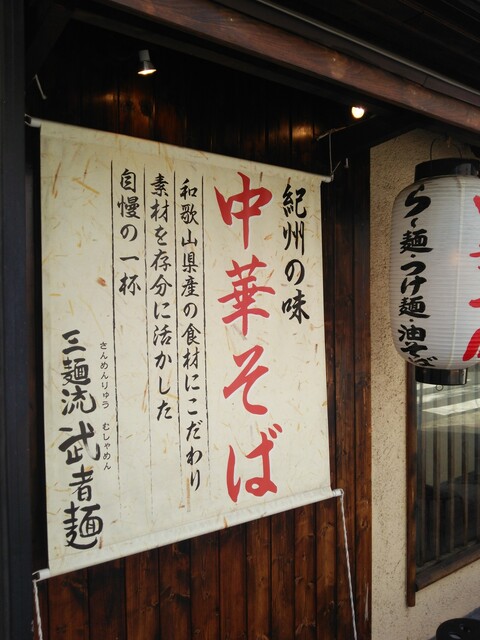 紀州の味
中華そば
和歌山県産の食材にこだわり
素材を存分に活かした
自慢の一杯
さんめんりゅう むしゃめん
三麺流 武者麺
らー麺・つけ麺・油そば